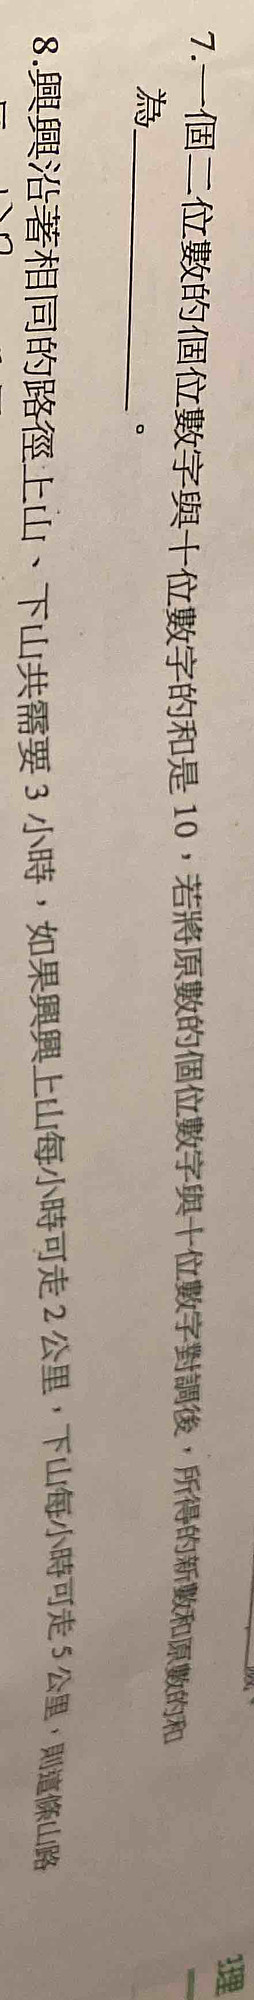 7.一個二位數的個位數字與十位數字的和是 10，若將原數的個位數字與十位數字對調後，所得的新數和原數的和
為＿＿＿＿＿＿。
8.興興沿著相同的路徑上山、下山共需要 3 小時，如果興興上山每小時可走 2 公里，下山每小時可走 5 公里，則這條山路
理